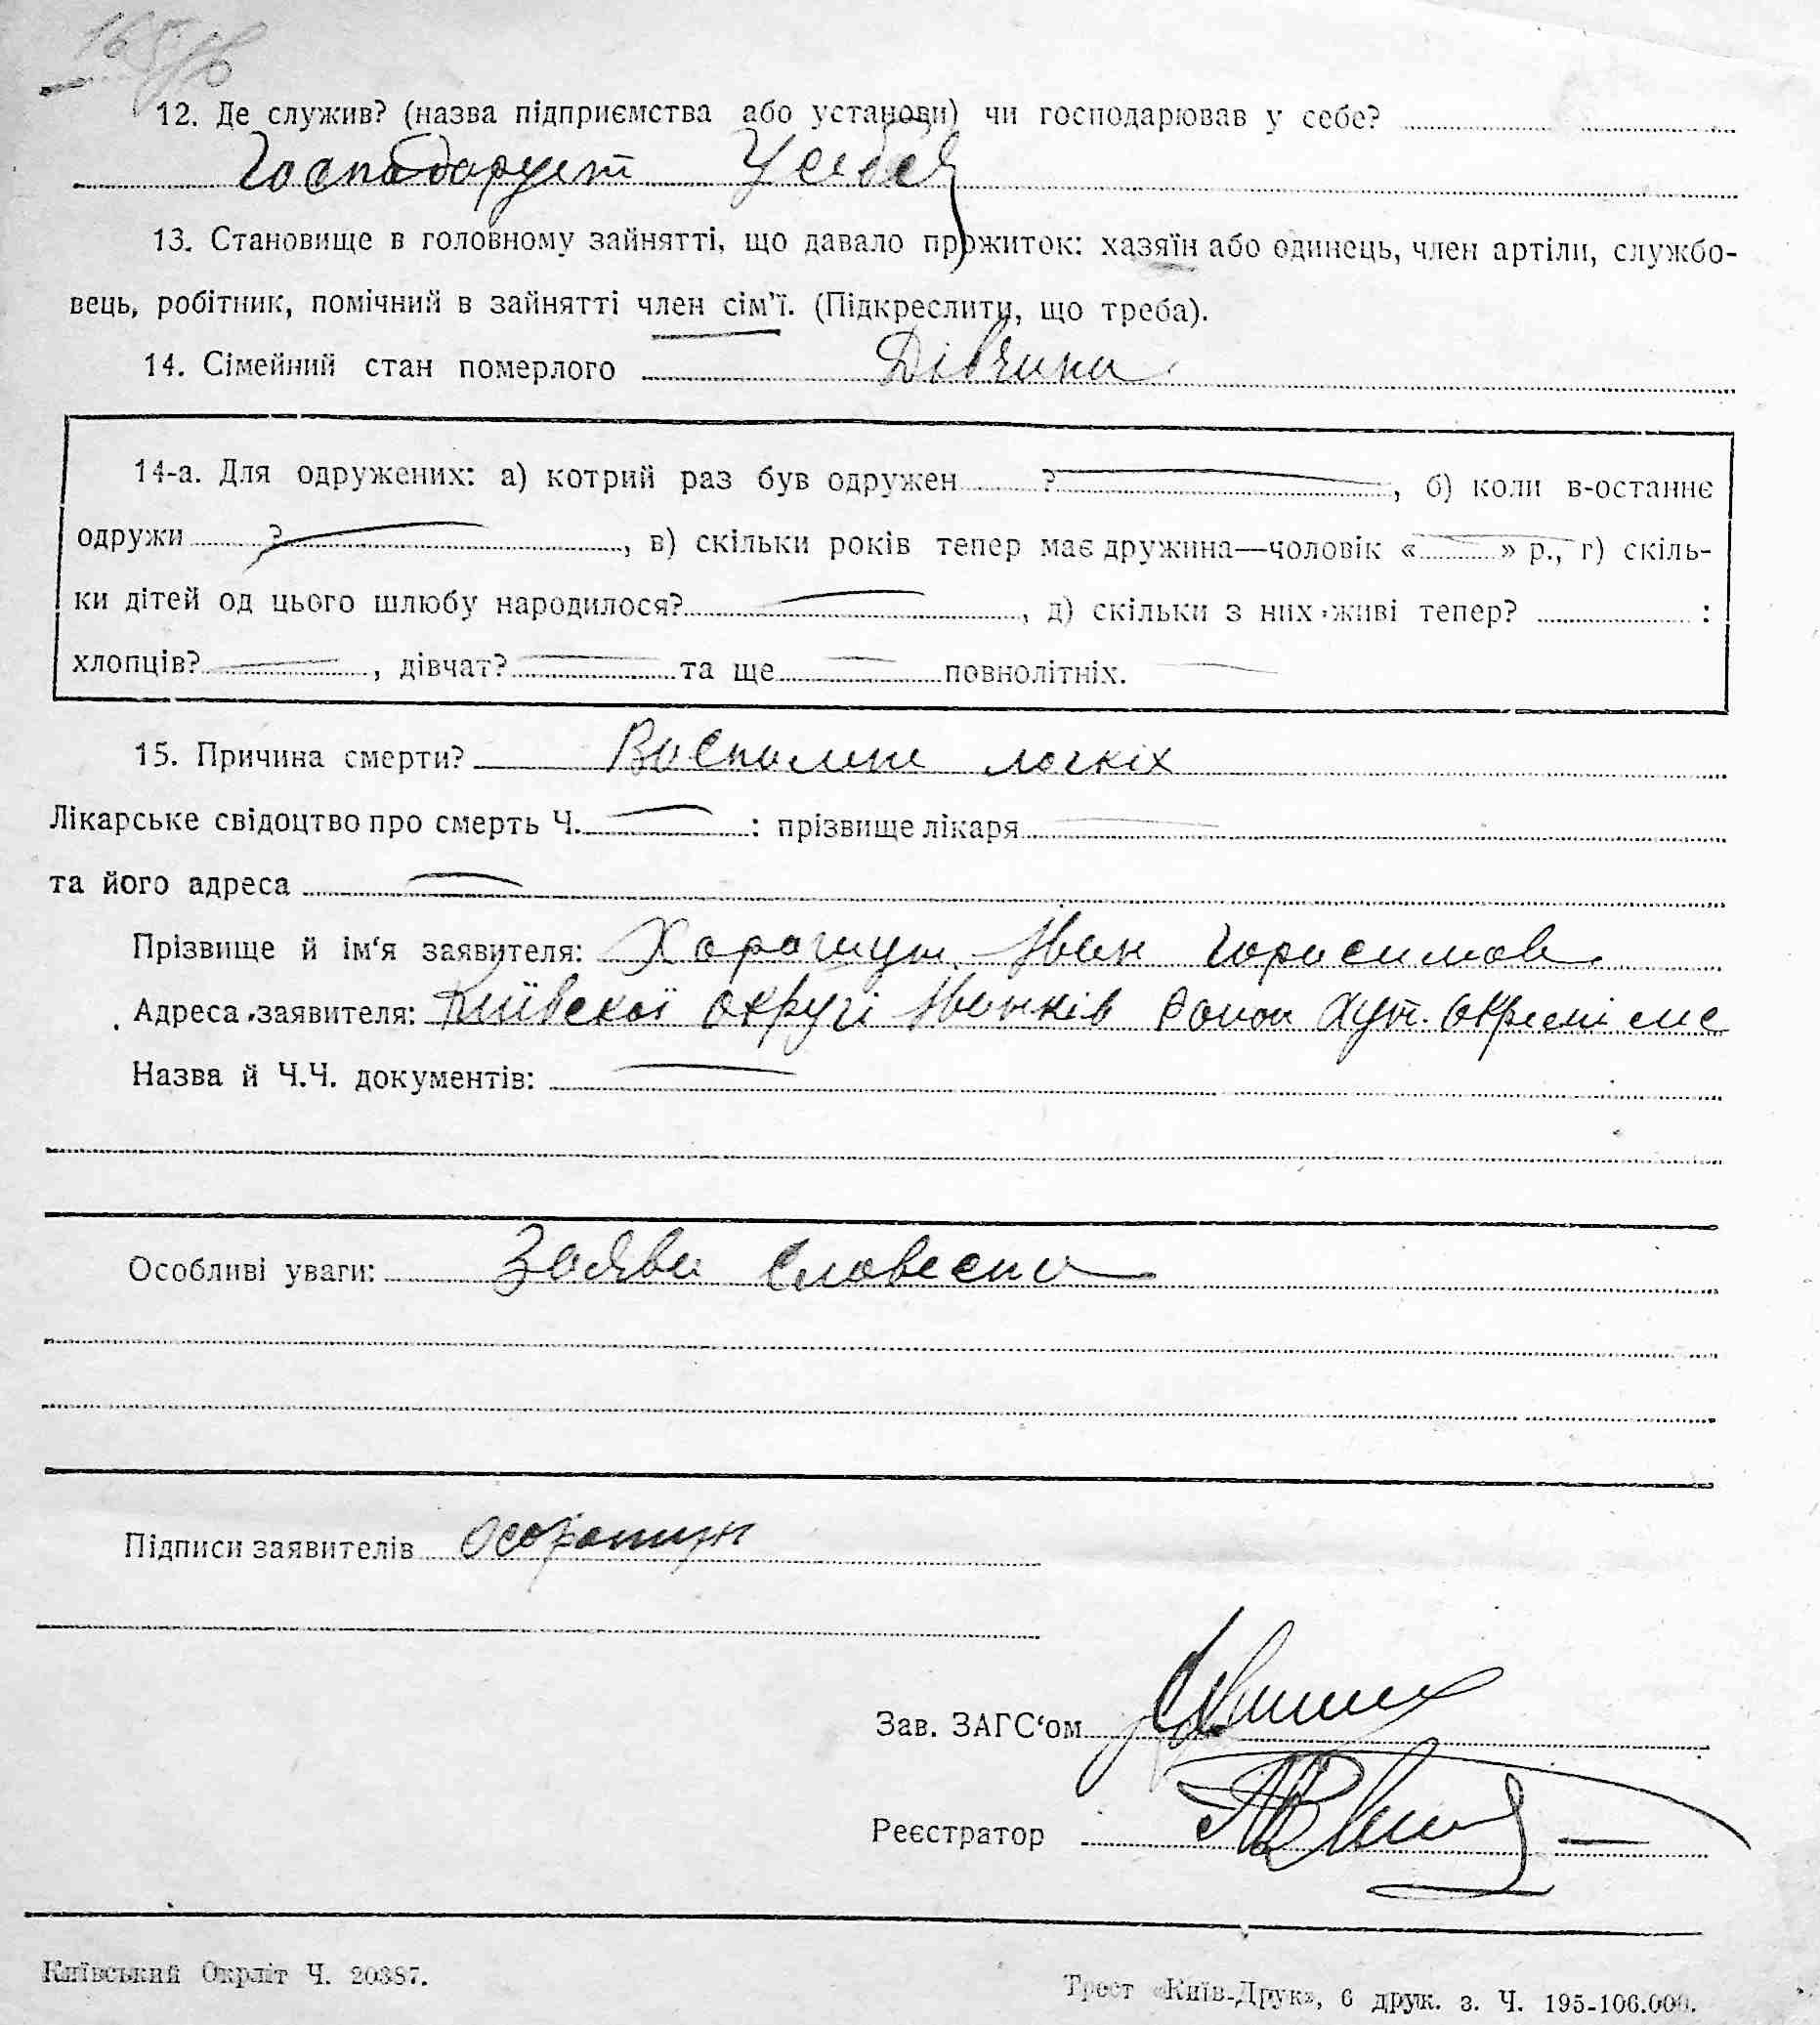 165
12. Де служив? (назва підприємства або установи) чи господарював у себе?
Господарует У себе
13. Становище в головному зайнятті, що давало прожиток: хазяїн або одинець, член артіли, службо-
вець, робітник, помічний в зайнятті член сім'ї. (Підкреслити, що треба).
14. Сімейний стан померлого Дівчина
14-а. Для одружених: а) котрий раз був одружен ? , б) коли в-останнє
одружи ? , в) скільки років тепер має дружина—чоловік « » р., г) скіль-
ки дітей од цього шлюбу народилося? , д) скільки з них живі тепер? :
хлопців? , дівчат? та ще повнолітніх.
15. Причина смерти? Воспалене логкіх
Лікарське свідоцтво про смерть Ч. : прізвище лікаря
та його адреса
Прізвище й ім'я заявителя: Іван Горасимов
Адреса заявителя: Київскої округі Іванків Район Хут.
Назва й Ч.Ч. документів:
Особливі уваги: Заява Словесна
Підписи заявителів
Зав. ЗАГС'ом
Реєстратор
Київський Окрліт Ч. 20387.
Трест «Київ-Друк», 6 друк. з. Ч. 195-106.000.